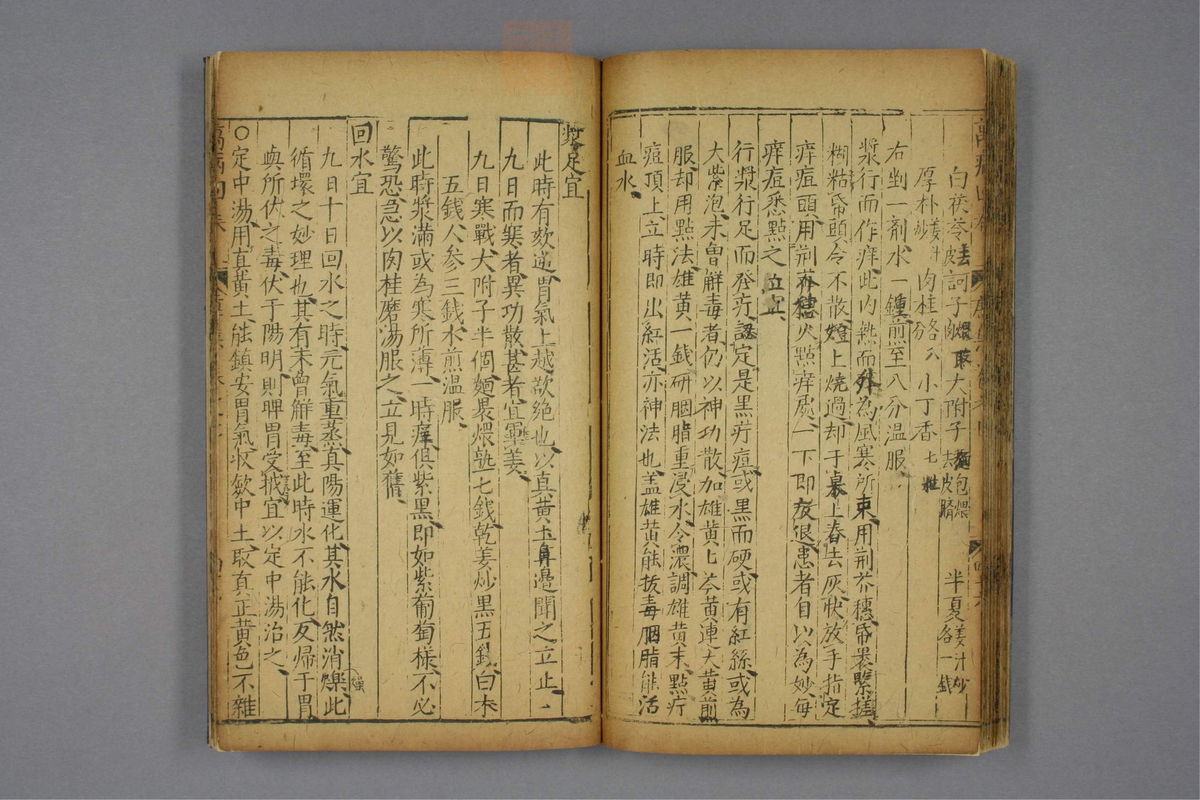 白茯苓 皮去 訶子 肉煨取 大附子 去皮臍 麵包煨 半夏 姜汁炒 各一錢
厚朴 姜炒 肉桂 各八分 小丁香 七粒
右剉一劑水一鍾煎至八分温服
漿行而作痒此内熱而外為風寒所束用荆芥穗昏裹緊搓
糊粘昏頭令不散燈上燒過却于桌上舂去灰快放手指定
痒痘頭用荆芥穗火點痒處一下即疫很患者自以為妙每
痒痘悉點之立止
行漿行足而發疔認定是黑疔痘或黑而硬或有紅絲或為
大紫泡未曾觧毒者仍以神功散加雄黄匕芩黄連大黄煎
服却用點法雄黄一錢研胭脂重浸水令濃調雄黄末點疔
痘頂上立時即出紅活亦神法也盖雄黄能拔毒胭脂能活
血水
漿足宜
此時有欬逆胃氣上越欲絶也以真黄土鼻邊聞之立止一
九日而寒者異功散甚者宜靈姜
九日寒戰大附子半個麵裹煨熟七錢乾姜炒黑五錢白术
五錢人参三錢水煎温服
此時漿滿或為寒所薄一時痒俱紫黑即如紫葡萄様不必
驚恐急以肉桂磨湯服之立見如舊
回水宜
九日十日回水之時元氣重蒸真陽運化其水自然消爍此
循環之妙理也其有未曾觧毒至此時水不能化反帰于胃
與所伏之毒伏于陽明則脾胃受摵宜以定中湯治之
○定中湯用宜黄土能鎮安胃氣收歛中土取真正黄色不雜